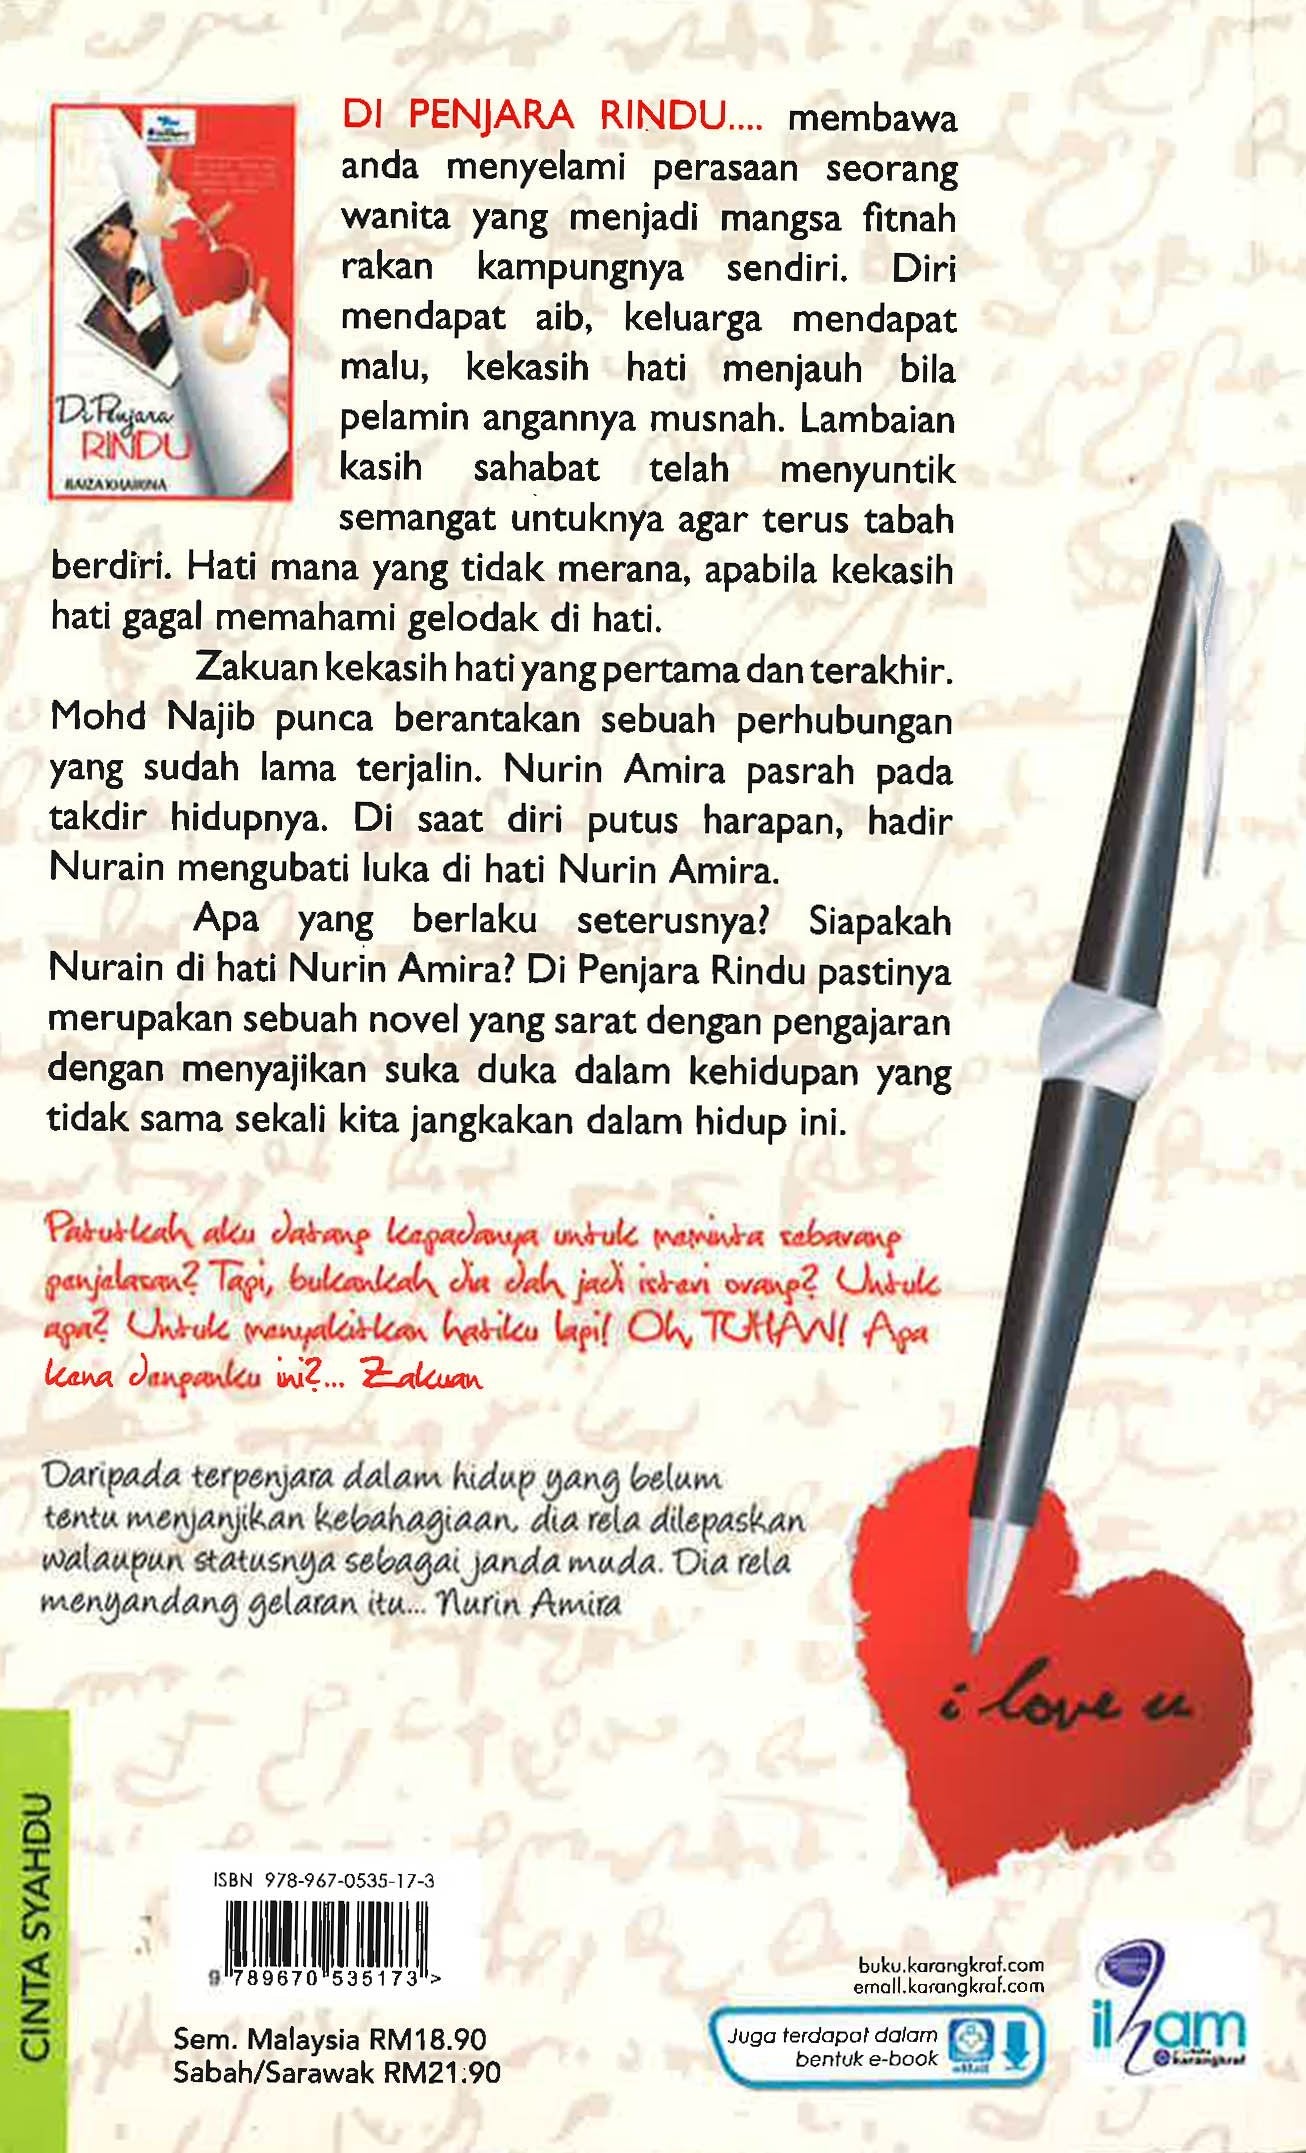 DI PENJARA RINDU.... membawa
anda menyelami perasaan seorang
wanita yang menjadi mangsa fitnah
rakan kampungnya sendiri. Diri
mendapat aib, keluarga mendapat
malu, kekasih hati menjauh bila
pelamin angannya musnah. Lambaian
kasih sahabat telah menyuntik
semangat untuknya agar terus tabah
berdiri. Hati mana yang tidak merana, apabila kekasih
hati gagal memahami gelodak di hati.
Zakuan kekasih hati yang pertama dan terakhir.
Mohd Najib punca berantakan sebuah perhubungan
yang sudah lama terjalin. Nurin Amira pasrah pada
takdir hidupnya. Di saat diri putus harapan, hadir
Nurain mengubati luka di hati Nurin Amira.
Apa yang berlaku seterusnya? Siapakah
Nurain di hati Nurin Amira? Di Penjara Rindu pastinya
merupakan sebuah novel yang sarat dengan pengajaran
dengan menyajikan suka duka dalam kehidupan yang
tidak sama sekali kita jangkakan dalam hidup ini.
Di Penjara
RINDU
Patutkah aku datang kepadanya untuk meminta sebarang
penjelasan? Tapi, bukankah dia dah jadi isteri orang? Untuk
apa? Untuk menyakitkan hatiku lagi! Oh, TUHAN! Apa
kena denganku ini?... Zakuan
Daripada terpenjara dalam hidup yang belum
tentu menjanjikan kebahagiaan, dia rela dilepaskan
walaupun statusnya sebagai janda muda. Dia rela
menyandang gelaran itu... Nurin Amira
i love u
CINTA SYAHDU
ISBN 978-967-0535-17-3
9 789670 535173 >
Sem. Malaysia RM18.90
Sabah/Sarawak RM21.90
buku.karangkraf.com
emall.karangkraf.com
Juga terdapat dalam
bentuk e-book
eMall
ilham
karangkraf